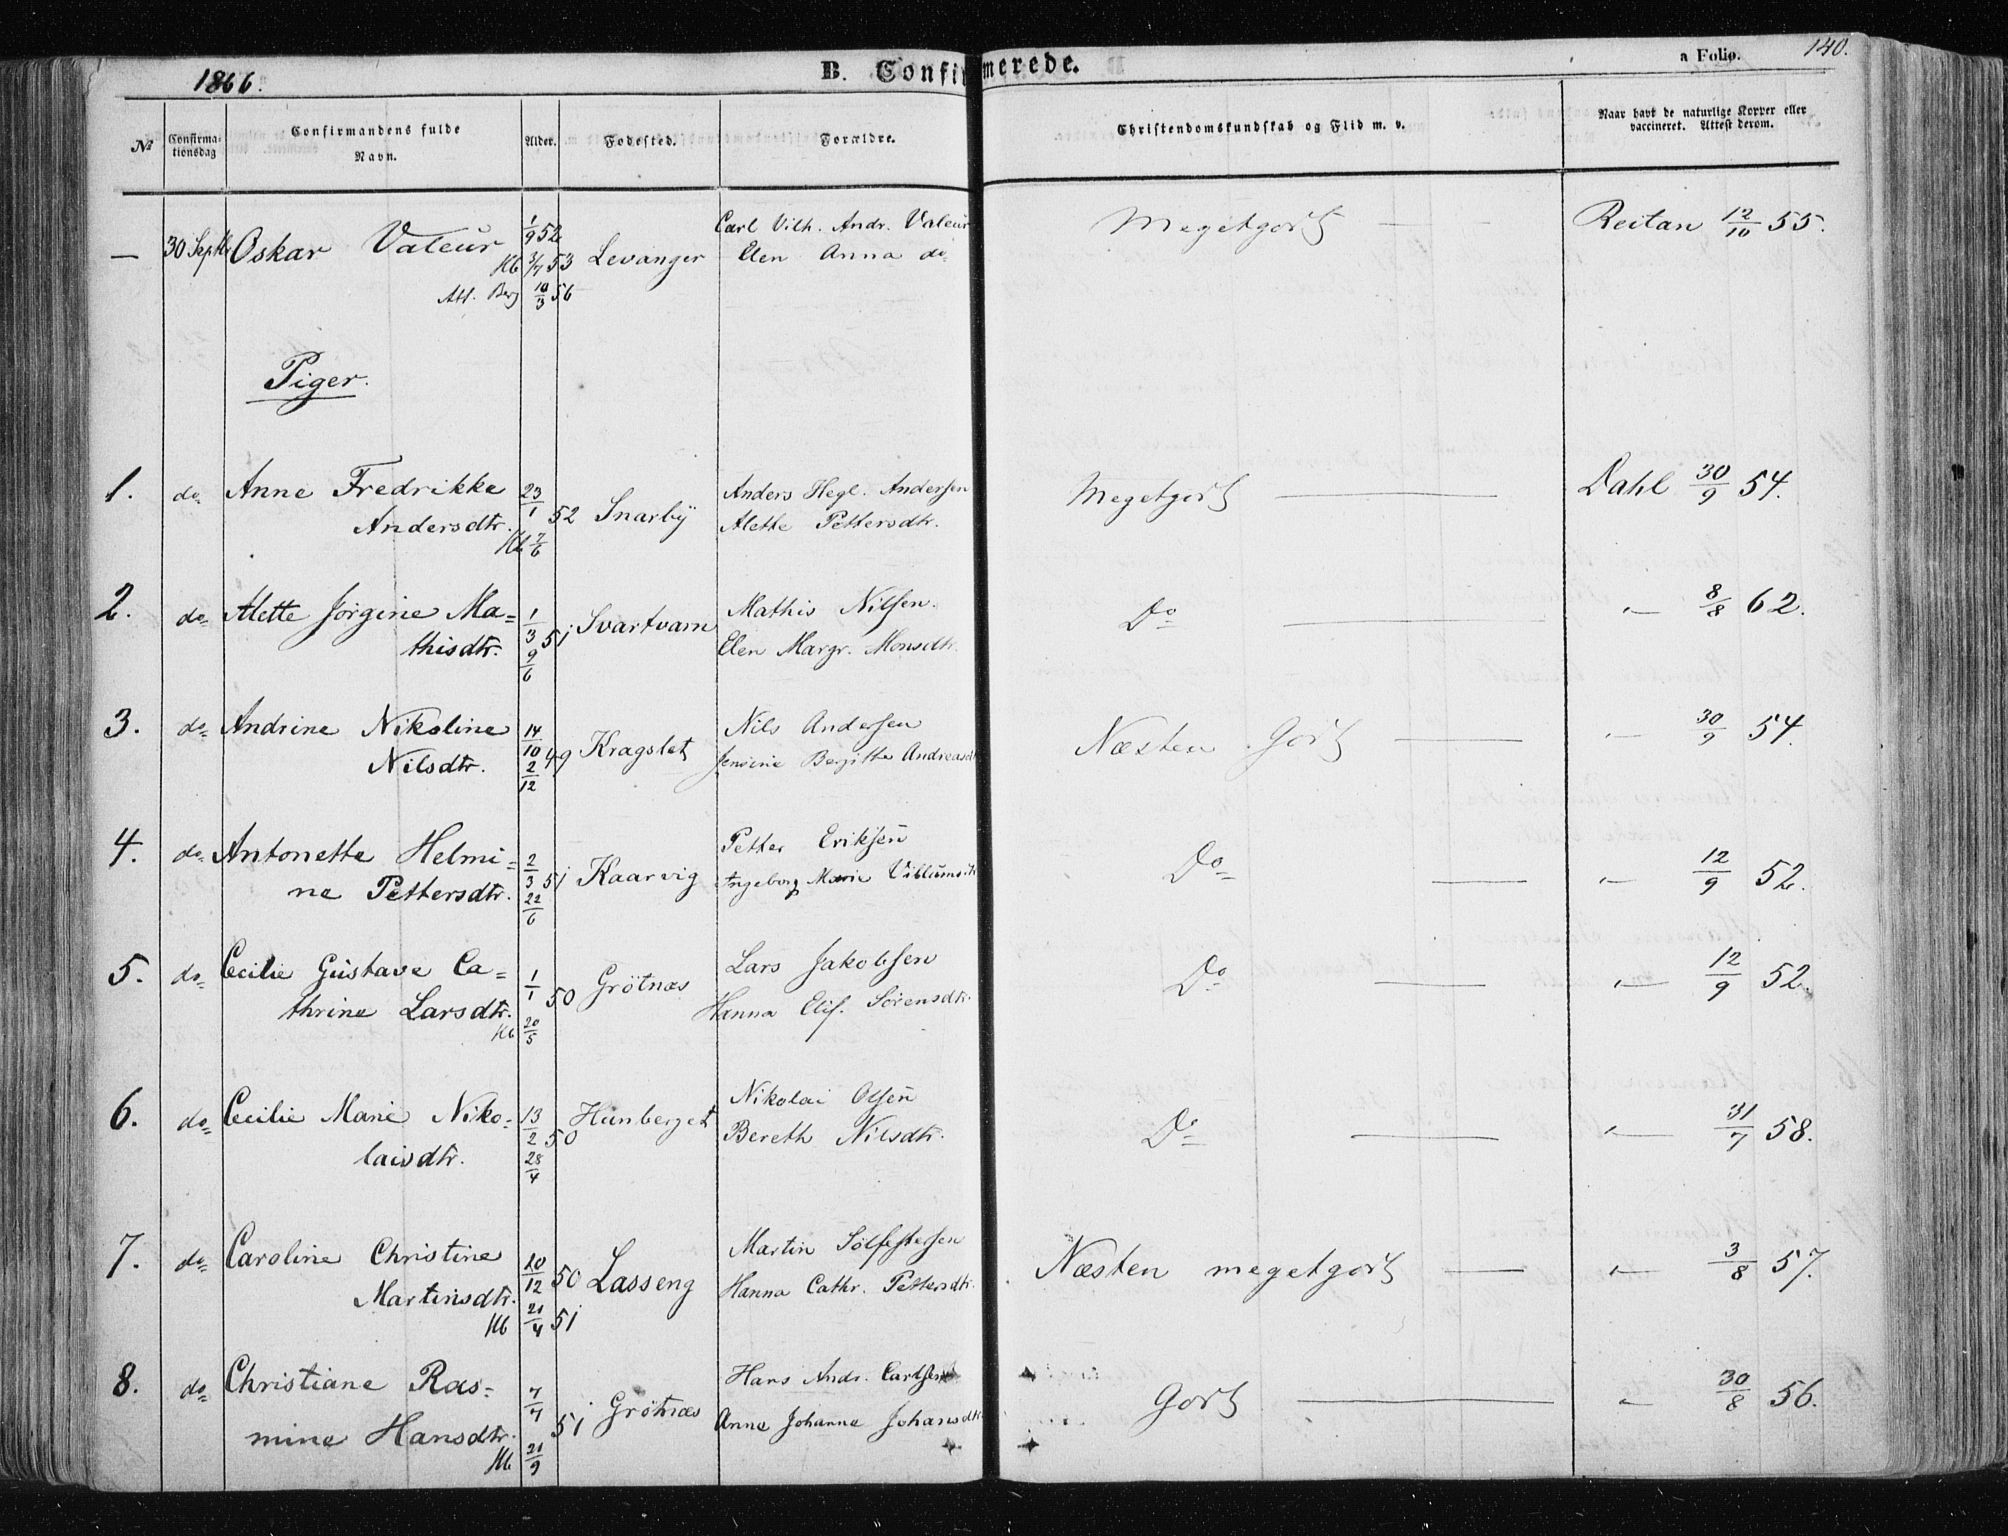 1866.
B. Confirmerede.
a Folio. 140.
No
Confirma-
tionsdag
Confirmandens fulde
Navn.
Alder.
Fødested.
Forældre.
Christendomskundskab og Flid m. v.
Naar havt de naturlige Kopper eller
vaccineret. Attest derom.
— 30 Septbr Oskar Valeur 1/9 52 Levanger Carl Vilh. Andr. Valeur Megetgodt — Reitan 12/10 55.
Kb 3/7 53 Elen Anna do
Att. Berg 10/3 56
Piger.
1. do Anne Fredrikke 23/1 52 Snarby Anders Hegl. Andersen Megetgodt — Dahl 30/9 54.
Andersdtr. Alette Pettersdtr.
Kb 7/6
2. do Alette Jørgine Ma= 1/3 51 Svartvarn Mathis Nilsen. Do — " — 8/8 62.
thisdtr. 9/6 Elen Margr. Monsdtr.
3. do Andrine Nikoline 14/10 49 Kragslet Nils Andersen Næsten Godt — " — 30/9 54.
Nilsdtr. 2/12 Jensine Bergitha Andreasdt
4. do Antonette Helmi= 2/3 51 Kaarvig Petter Eriksen Do — " — 12/9 52.
ne Pettersdtr. 22/6 Ingeborg Marie Villumsdt
5. do Cecilie Gustava Ca= 1/1 50 Grötnæs Lars Jakobsen Do — " — 12/9 52.
thrine Larsdtr. Hanna Elis. Sørensdtr.
Kb 20/5
6. do Cecilie Marie Niko= 13/2 50 Hunberget Nikolai Olsen Do — " — 31/7 58.
laisdtr. 28/4 Bereth Nilsdtr.
7. do Caroline Christine 10/12 50 Lasseng Martin Sølfestersen Næsten megetgodt — " — 3/8 57.
Martinsdtr. Hanna Cathr. Pettersdtr.
Kb 21/4 51
8. do Christiane Ras= 7/7 51 Grötnæs Hans Andr. Carlsen Godt — " — 30/8 56.
mine Hansdtr. Anna Johanna Johansdtr
Kb 21/9